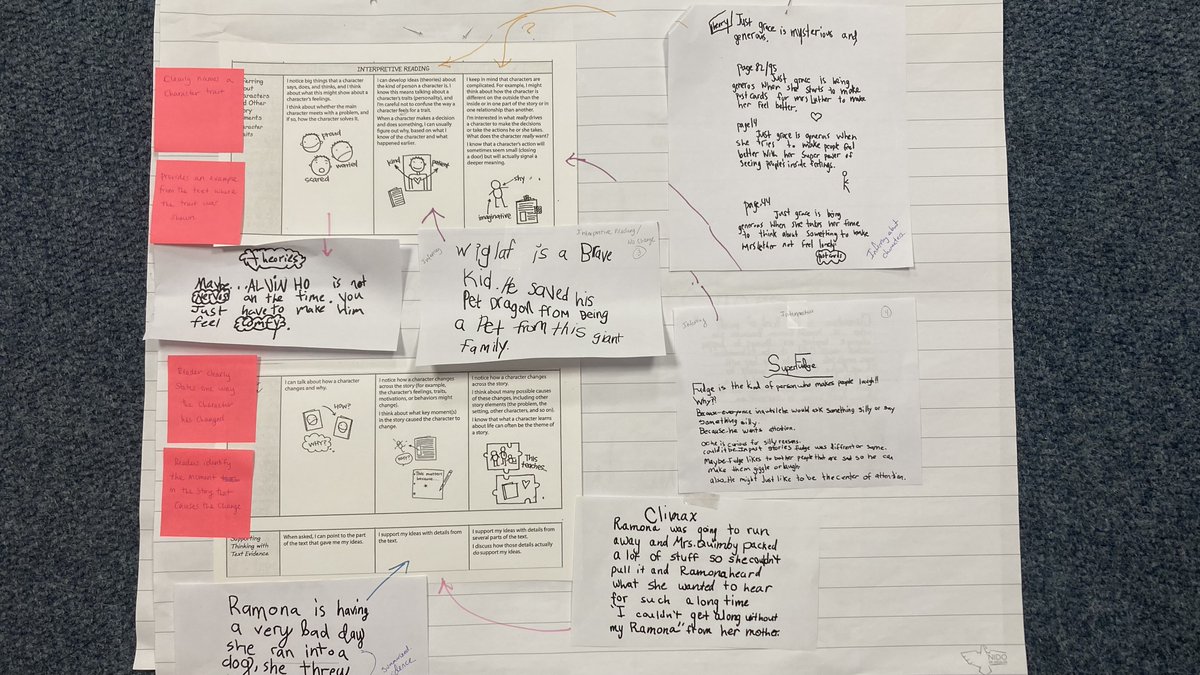 ?
INTERPRETIVE READING
Clearly names a
character trait
Provides an example
from the text where
the trait was
shown
I notice big things that a character
says, does, and thinks, and I think
about what this might show about a
character's feelings.
I think about whether the main
character meets with a problem, and
if so, how the character solves it.
proud
worried
scared
I can develop ideas (theories) about
the kind of person a character is. I
know this means talking about a
character's traits (personality), and
I'm careful not to confuse the way a
character feels for a trait.
When a character makes a decision
and does something, I can usually
figure out why, based on what I
know of the character and what
happened earlier.
kind
patient
I keep in mind that characters are
complicated. For example, I might
think about how the character is
different on the outside than the
inside or in one part of the story or in
one relationship than another.
I'm interested in what really drives
a character to make the decisions
or take the actions he or she takes.
What does the character really want?
I know that a character's action will
sometimes seem small (closing
a door) but will actually signal a
deeper meaning.
shy...
imaginative
Just grace is mysterious and
generous.
page 82/95
Just grace is being
generos when she starts to make
post cards for mrs Luther to make
her feel better.
page 14
Just grace is generos when
she tries to make people feel
better with her super power of
seeing people's inside feelings.
page 44
Just grace is being
generous when she takes her time
to think about something to make
Mrs Luther not feel lonely
postcards
Infering about
characters
Theories
Maybe...ALVIN HO is not
Nervos all the time. You
Just have to make Him
feel comfy.
Interpretive Reading/
No Change
2
Infering
Wiglaf is a Brave
Kid. He saved his
Pet Dragon from Being
a Pet from this giant
family.
Reader clearly
states one way
the character
has changed
Readers identify
the moment
in the story that
causes the change
I can talk about how a character
changes and why.
HOW?
WHY?
I notice how a character changes
across the story (for example,
the character's feelings, traits,
motivations, or behaviors might
change).
I think about what key moment(s) in
the story caused the character to
change.
WHY?
This matters
because...
I notice how a character changes
across the story.
I think about many possible causes of
these changes, including other
story elements (the problem, the
setting, other characters, and so on).
I know that what a character learns
about life can often be the theme of
a story.
This
teaches...
Infering
Interpretive
4
SuperFudge
Fudge is the kind of person who makes people laugh!!
Why?!
Because everyonce in a while he would ask something silly or say
something silly.
Because he wants attention.
Maybe Fudge likes to bother people that are sad so he can
make them giggle or laugh
also. He might just like to be the center of attention.
Supporting
Thinking with
Text Evidence
When asked, I can point to the part
of the text that gave me my ideas.
I support my ideas with details from
the text.
I support my ideas with details from
several parts of the text.
I discuss how those details actually
do support my ideas.
Climax
Ramona was going to run
away and Mrs. Quimby packed
a lot of stuff so she couldn't
pull it and Ramona heard
what she wanted to hear
for such a long time
"I couldn't get along without
my Ramona" from her mother.
Ramona is having
a very bad day
she ran into a
dog, she threw
Summarized
NIDO